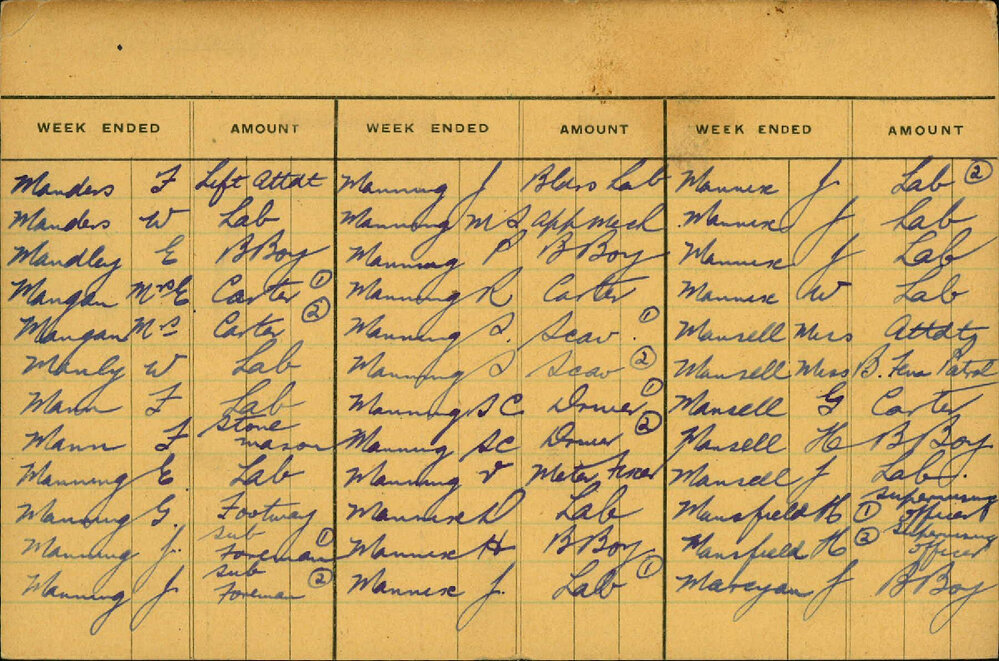 WEEK ENDED AMOUNT WEEK ENDED AMOUNT WEEK ENDED AMOUNT
Manders F Lift Attdt
Manders W Lab
Mandley E B Boy
Mangan Mrs E Carter ①
Mangan Mrs Carter ②
Manly W Lab
Mann F Lab
Mann F Stone
mason
Manning E. Lab
Manning G. Footway
Manning J. Sub
Foreman ①
Manning J. Sub
Foreman ②
Manning J Bldrs Lab
Manning M S App Mech
Manning P B Boy
Manning R Carter
Manning S. Scav. ①
Manning S Scav ②
Manning S C Driver ①
Manning S C Driver ②
Manning V Meter Fixer
Mannix D Lab
Mannix H B Boy
Mannix J. Lab ①
Mannix J Lab ②
Mannix J Lab
Mannix J Lab
Mannix W Lab
Mansell Miss Attdt
Mansell Miss B. Fem Patrol
Mansell G Carter
Mansell H B Boy
Mansell J Lab.
Mansfield H ① Supervising
Officer
Mansfield H ② Supervising
Officer
J B Boy